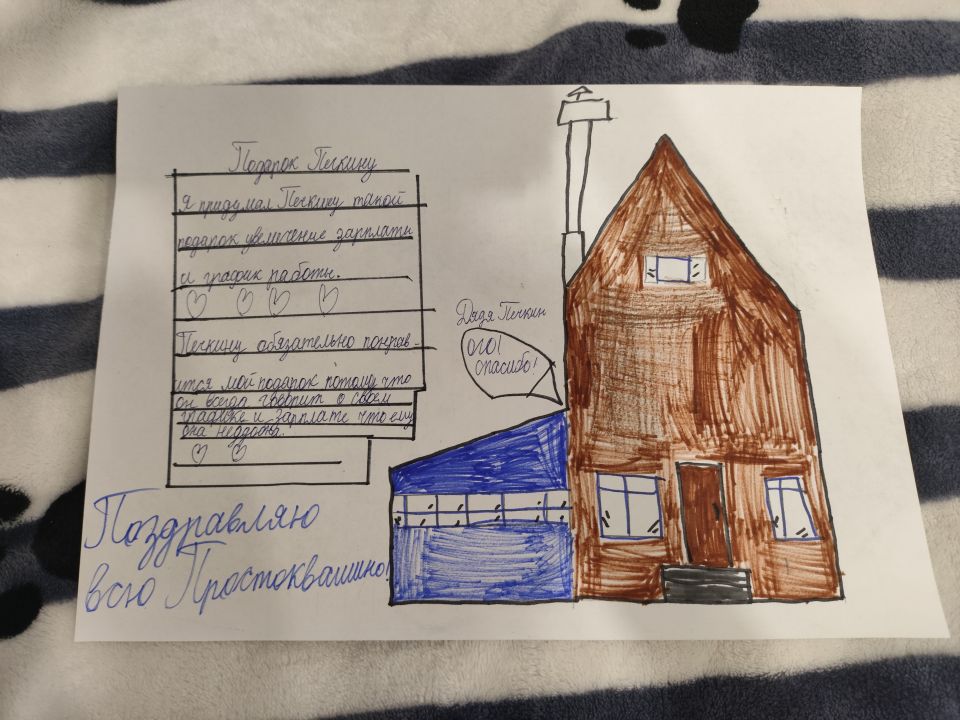 Подарок Печкину
Я придумал Печкину такой
подарок увеличение зарплаты
и график работы.
Печкину обязательно понрав-
ится мой подарок потому что
он всегда говорит о своем
графике и зарплате что ему
она неудобна.
Дядя Печкин
ого!
спасибо!
Поздравляю
всю Простоквашино!